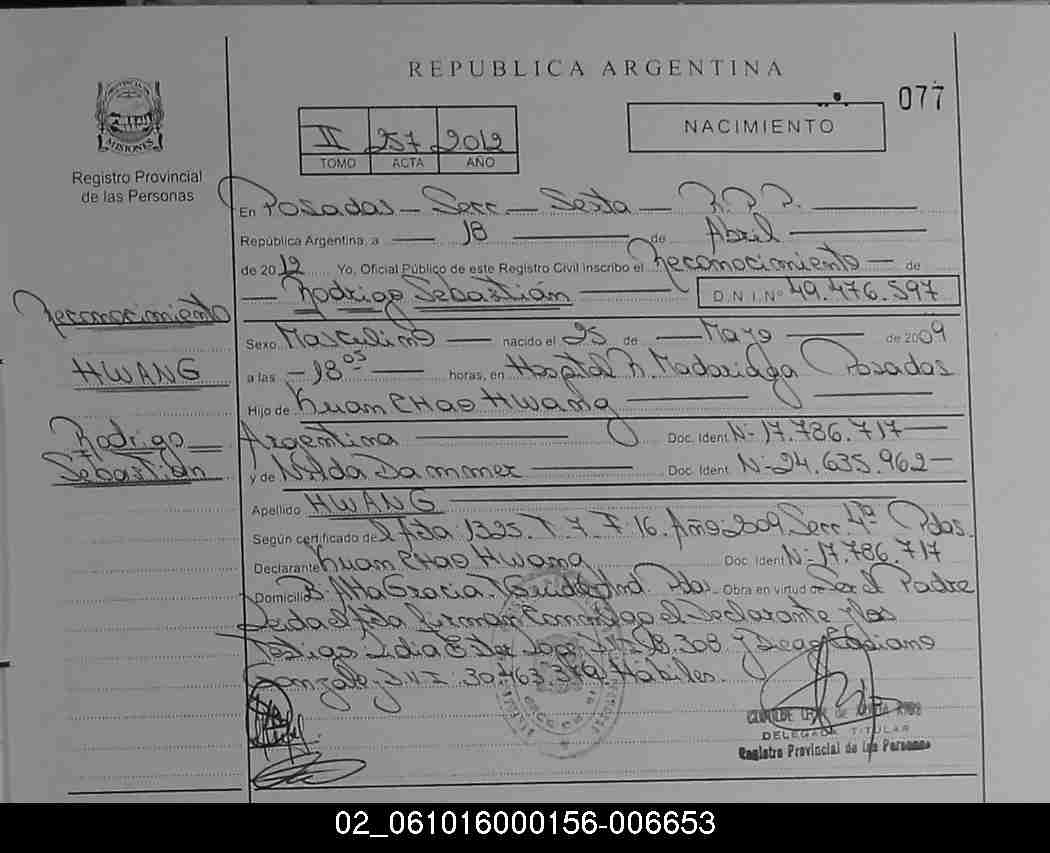 REPUBLICA ARGENTINA
077
PROVINCIA DE
MISIONES
Registro Provincial
de las Personas
II 257 2012
TOMO ACTA AÑO
NACIMIENTO
En Posadas - Secc - Sexta - R.P.P.
República Argentina, a 18 de Abril
de 2012 Yo, Oficial Público de este Registro Civil inscribo el Reconocimiento de
Rodrigo Sebastián D.N.I.Nº 49.476.597
Reconocimiento
HWANG
Rodrigo
Sebastián
Sexo Masculino nacido el 25 de Mayo de 2009
a las 18 05 horas, en Hospital R. Madariaga Posadas
Hijo de Kuam CHao Hwang
Argentina Doc. Ident Nº 17.786.717
y de Nilda Dammer Doc. Ident. Nº 24.635.962
Apellido HWANG
Según certificado de Acta 1325. T. 7. F 16. Año 2009 Secc. 4ª Pdas.
Declarante Kuam CHao Hwang Doc. Ident Nº 17.786.717
Domicilio B. Alta Gracia. Pdas. Obra en virtud de Ser el Padre
Leida el Acta firman Conmigo el Declarante y los
Testigo Lidia Ester 308 y Diego
Gonzalez D.N.I. Hábiles.
DELEGADA TITULAR
Registro Provincial de las Personas
02_061016000156-006653